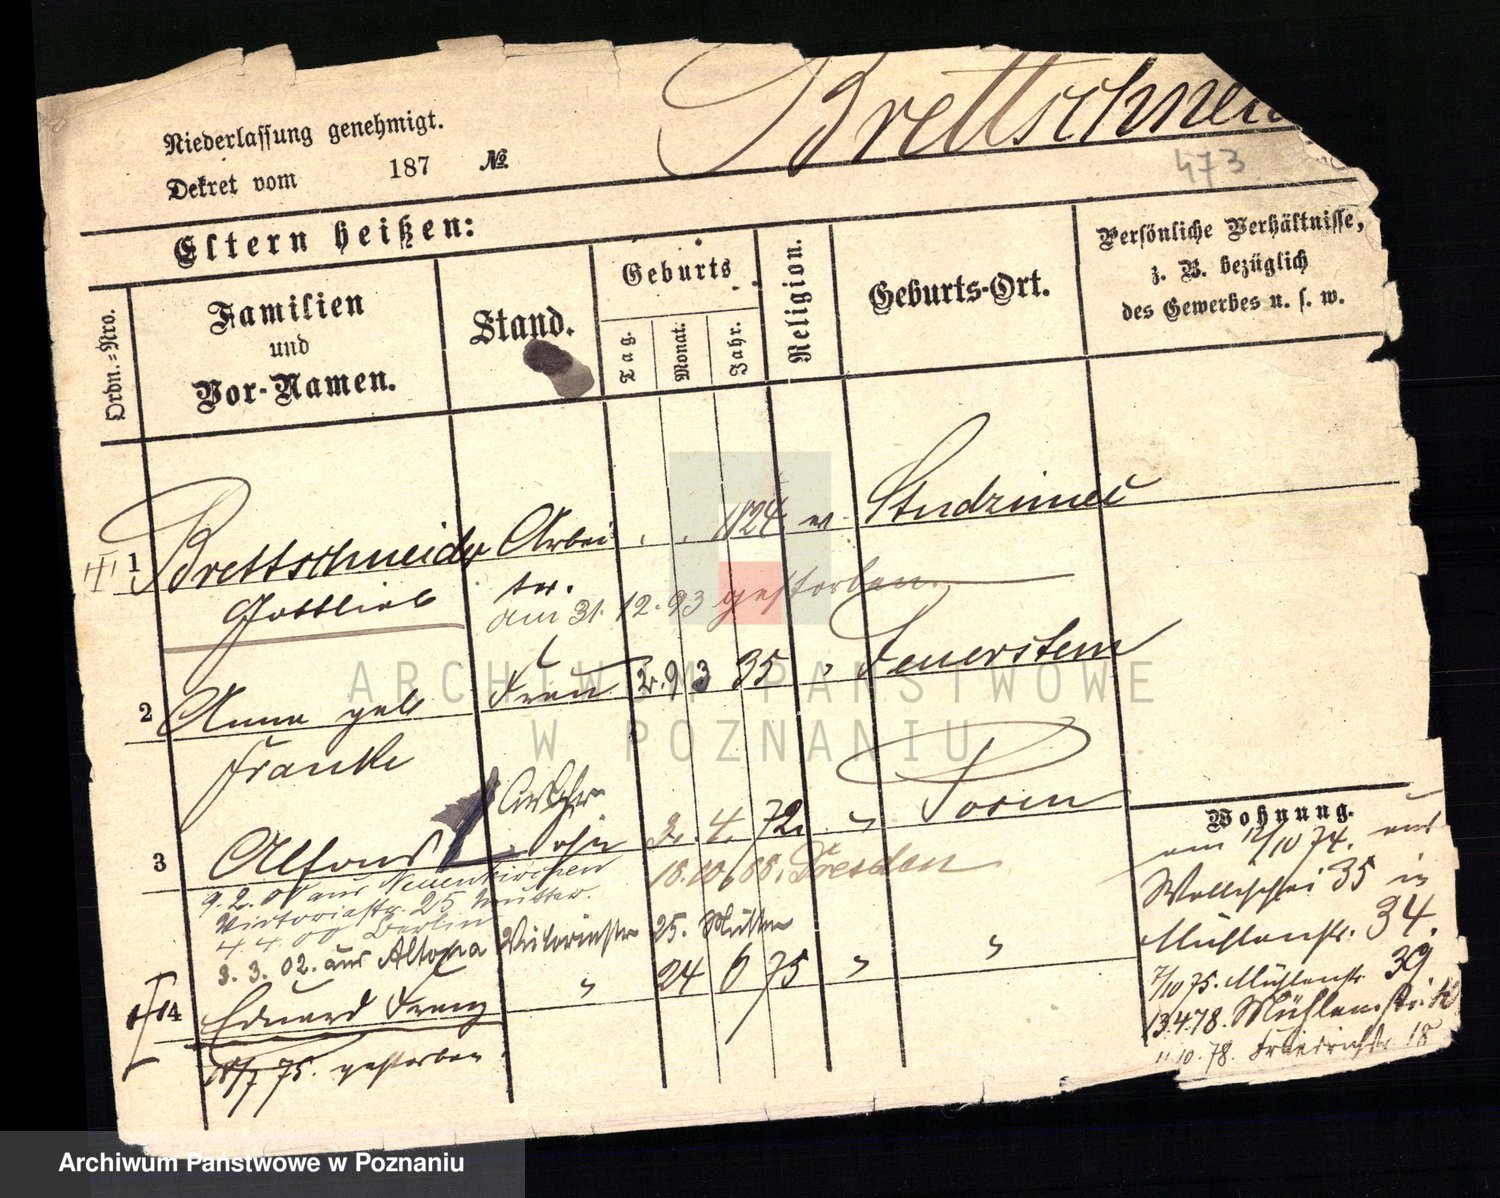 Brettschnei
Niederlassung genehmigt.
Dekret vom 187 №
473
Eltern heißen:
Ordn.-Nro.
Familien
und
Vor-Namen.
Stand.
Geburts
Tag.
Monat.
Jahr.
Religion.
Geburts-Ort.
Persönliche Verhältnisse,
z. B. bezüglich
des Gewerbes u. s. w.
1 Brettschneider Arbei 24
Gottlieb ter.
am 31.12.93 gestorben.
2 Anna geb Frau 2. 9 35 Feuerstein
Franke
3 Alfons Sohn 2. 4. 72. " Posen
9.2.00 aus Neuenkirchen Dresden
Victoriastr. 25 Mutter.
4.4.00 Berlin
3.3.02. aus Altona Victoriastr 25. Mutter
14 Eduard Franz " 24 6 75 " "
18/7 75. gestorben
Wohnung.
am 12/10 74. aus
Wallischei 35 in
Mühlenstr. 34.
7/10 75. Mühlenstr 39
13.4.78. Mühlenstr.
11.10.78. Friedrichstr 18
ARCHIWUM PAŃSTWOWE
W POZNANIU
Archiwum Państwowe w Poznaniu